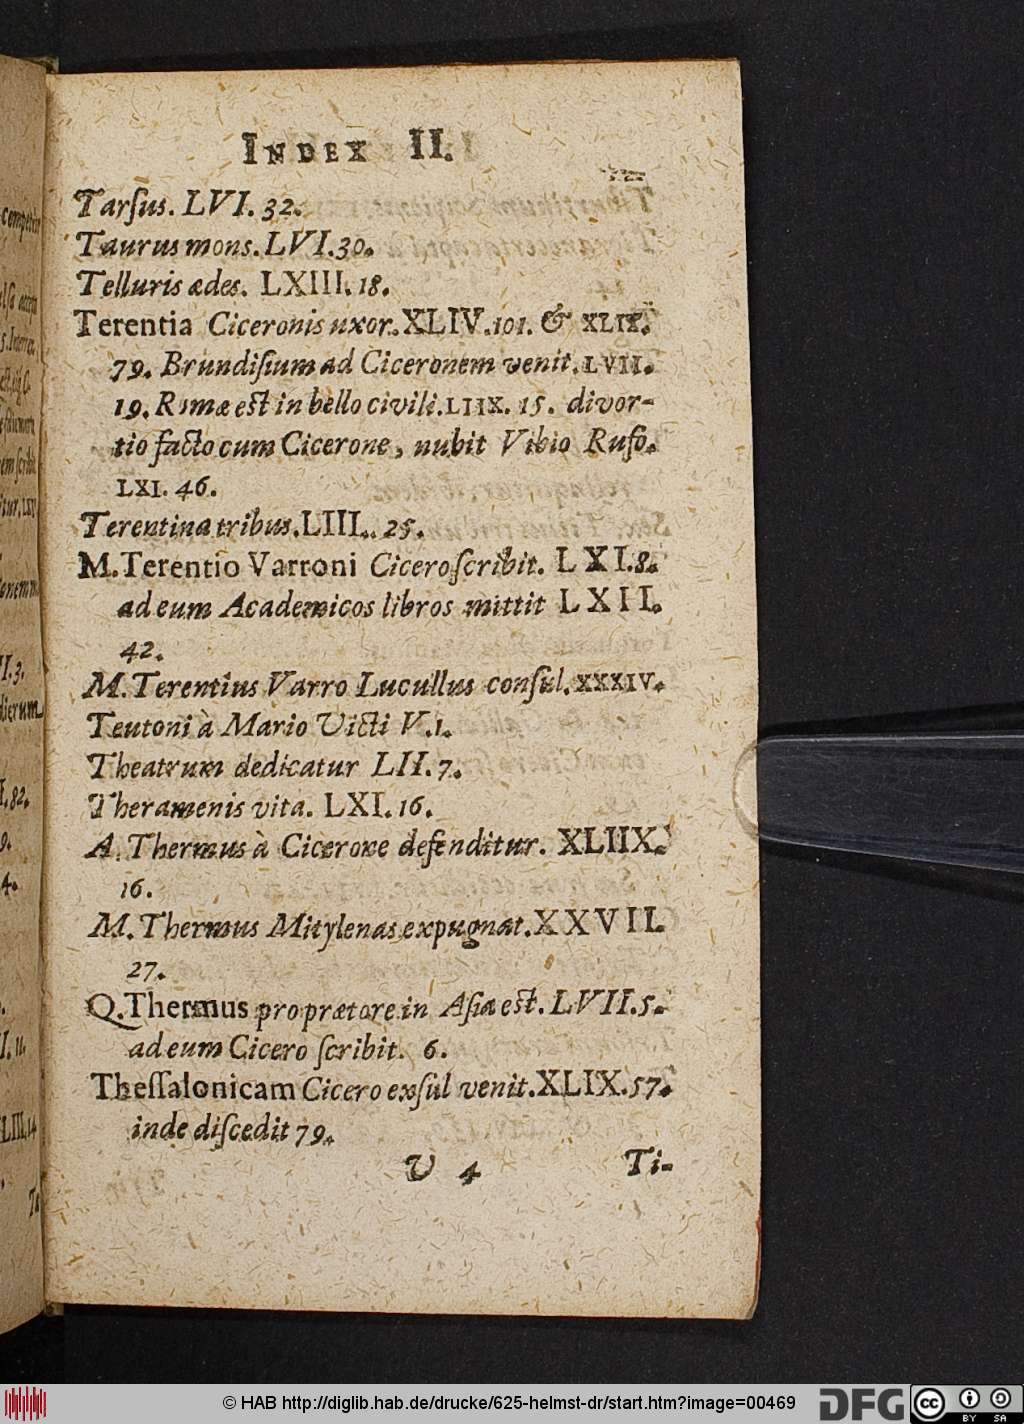 INDEX II.
Tarſus. LVI. 32.
Taurus mons. LVI. 30.
Telluris ædes. LXIII. 18.
Terentia Ciceronis uxor. XLIV. 101. & XLIX.
79. Brundiſium ad Ciceronem venit. LVII.
19. Romæ eſt in bello civili. LIIX. 15. divor-
tio facto cum Cicerone, nubit Vibio Rufo.
LXI. 46.
Terentina tribus. LIII. 25.
M. Terentio Varroni Cicero ſcribit. LXI. 8.
ad eum Academicos libros mittit LXII.
42.
M. Terentius Varro Lucullus conſul. XXXIV.
Teutoni à Mario Victi V. 1.
Theatrum dedicatur LII. 7.
Theramenis vita. LXI. 16.
A. Thermus à Cicerone defenditur. XLIIX.
16.
M. Thermus Mitylenas expugnat. XXVII.
27.
Q. Thermus pro prætore in Aſia eſt. LVII. 5.
ad eum Cicero ſcribit. 6.
Theſſalonicam Cicero exſul venit. XLIX. 57.
inde diſcedit 79.
V 4 Ti-
© HAB http://diglib.hab.de/drucke/625-helmst-dr/start.htm?image=00469
DFG
cc BY SA